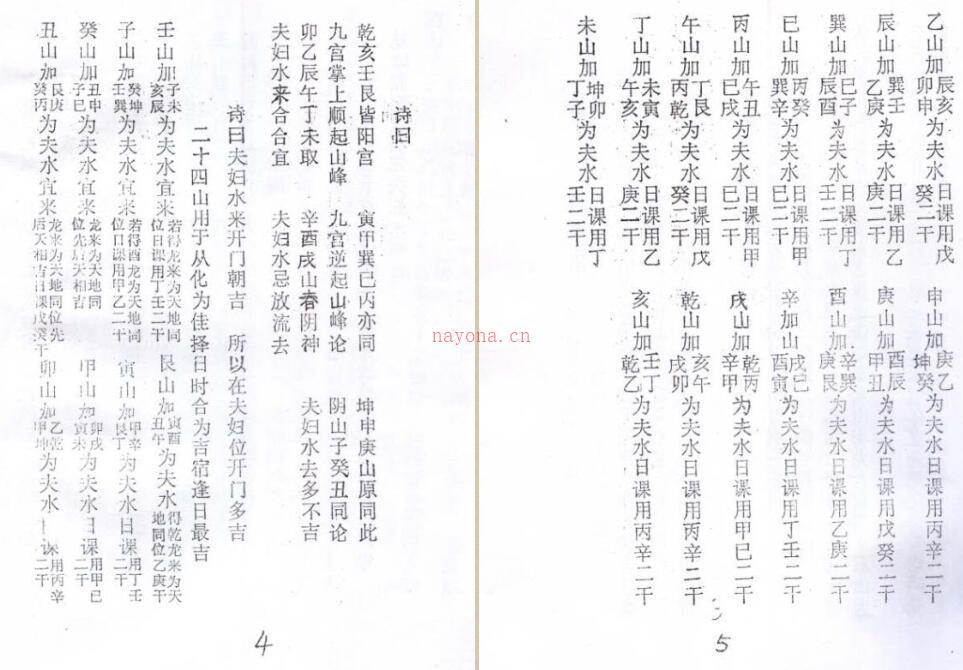 诗曰
乾亥壬艮皆阳宫 寅甲巽巳丙亦同 坤申庚山原同此
九宫掌上顺起山峰 九宫逆起山峰论 阴山子癸丑同论
卯乙辰午丁未取 辛酉戌山春阴神 夫妇水去多不吉
夫妇水来合合宜 夫妇水忌放流去
诗曰夫妇水来开门朝吉 所以在夫妇位开门多吉
二十四山用于从化为佳择日时合为吉宿逢日最吉
壬山加子未亥辰为夫水宜来若得龙来为天地同位日课用丁壬二干 艮山加寅酉丑午为夫水得乾龙来为天地同位乙庚干
子山加癸坤壬巽为夫水宜来若得酉龙为天地同位口课用甲乙二十 寅山加甲辛艮丁为夫水日课用丁壬二干
癸山加丑申子巳为夫水宜来龙来为天地同位先后天相吉 甲山加卯戌寅未为夫水日课用甲巳二干
丑山加艮庚癸丙为夫水宜来龙来为天地同位先后天相吉日课戊癸干 卯山加乙乾甲坤为夫水日课用丙辛二干
4
乙山加辰亥卯申为夫水日课用戊癸二干 申山加庚乙坤癸为夫水日课用丙辛二干
辰山加巽壬乙庚为夫水日课用乙庚二干 庚山加酉辰甲丑为夫水日课用戊癸二干
巽山加巳子辰酉为夫水日课用丁壬二干 酉山加辛巽庚艮为夫水日课用乙庚二干
巳山加丙癸巽辛为夫水日课用甲巳二干 辛加山戌巳酉寅为夫水日课用丁壬二干
丙山加午丑巳戌为夫水日课用甲巳二干 戌山加乾丙辛甲为夫水日课用甲巳二干
午山加丁艮丙乾为夫水日课用戊癸二干 乾山加亥午戌卯为夫水日课用丙辛二干
丁山加未寅午亥为夫水日课用乙庚二干 亥山加壬丁乾乙为夫水日课用丙辛二干
未山加坤卯丁子为夫水日课用丁壬二干
5
nayona.cn